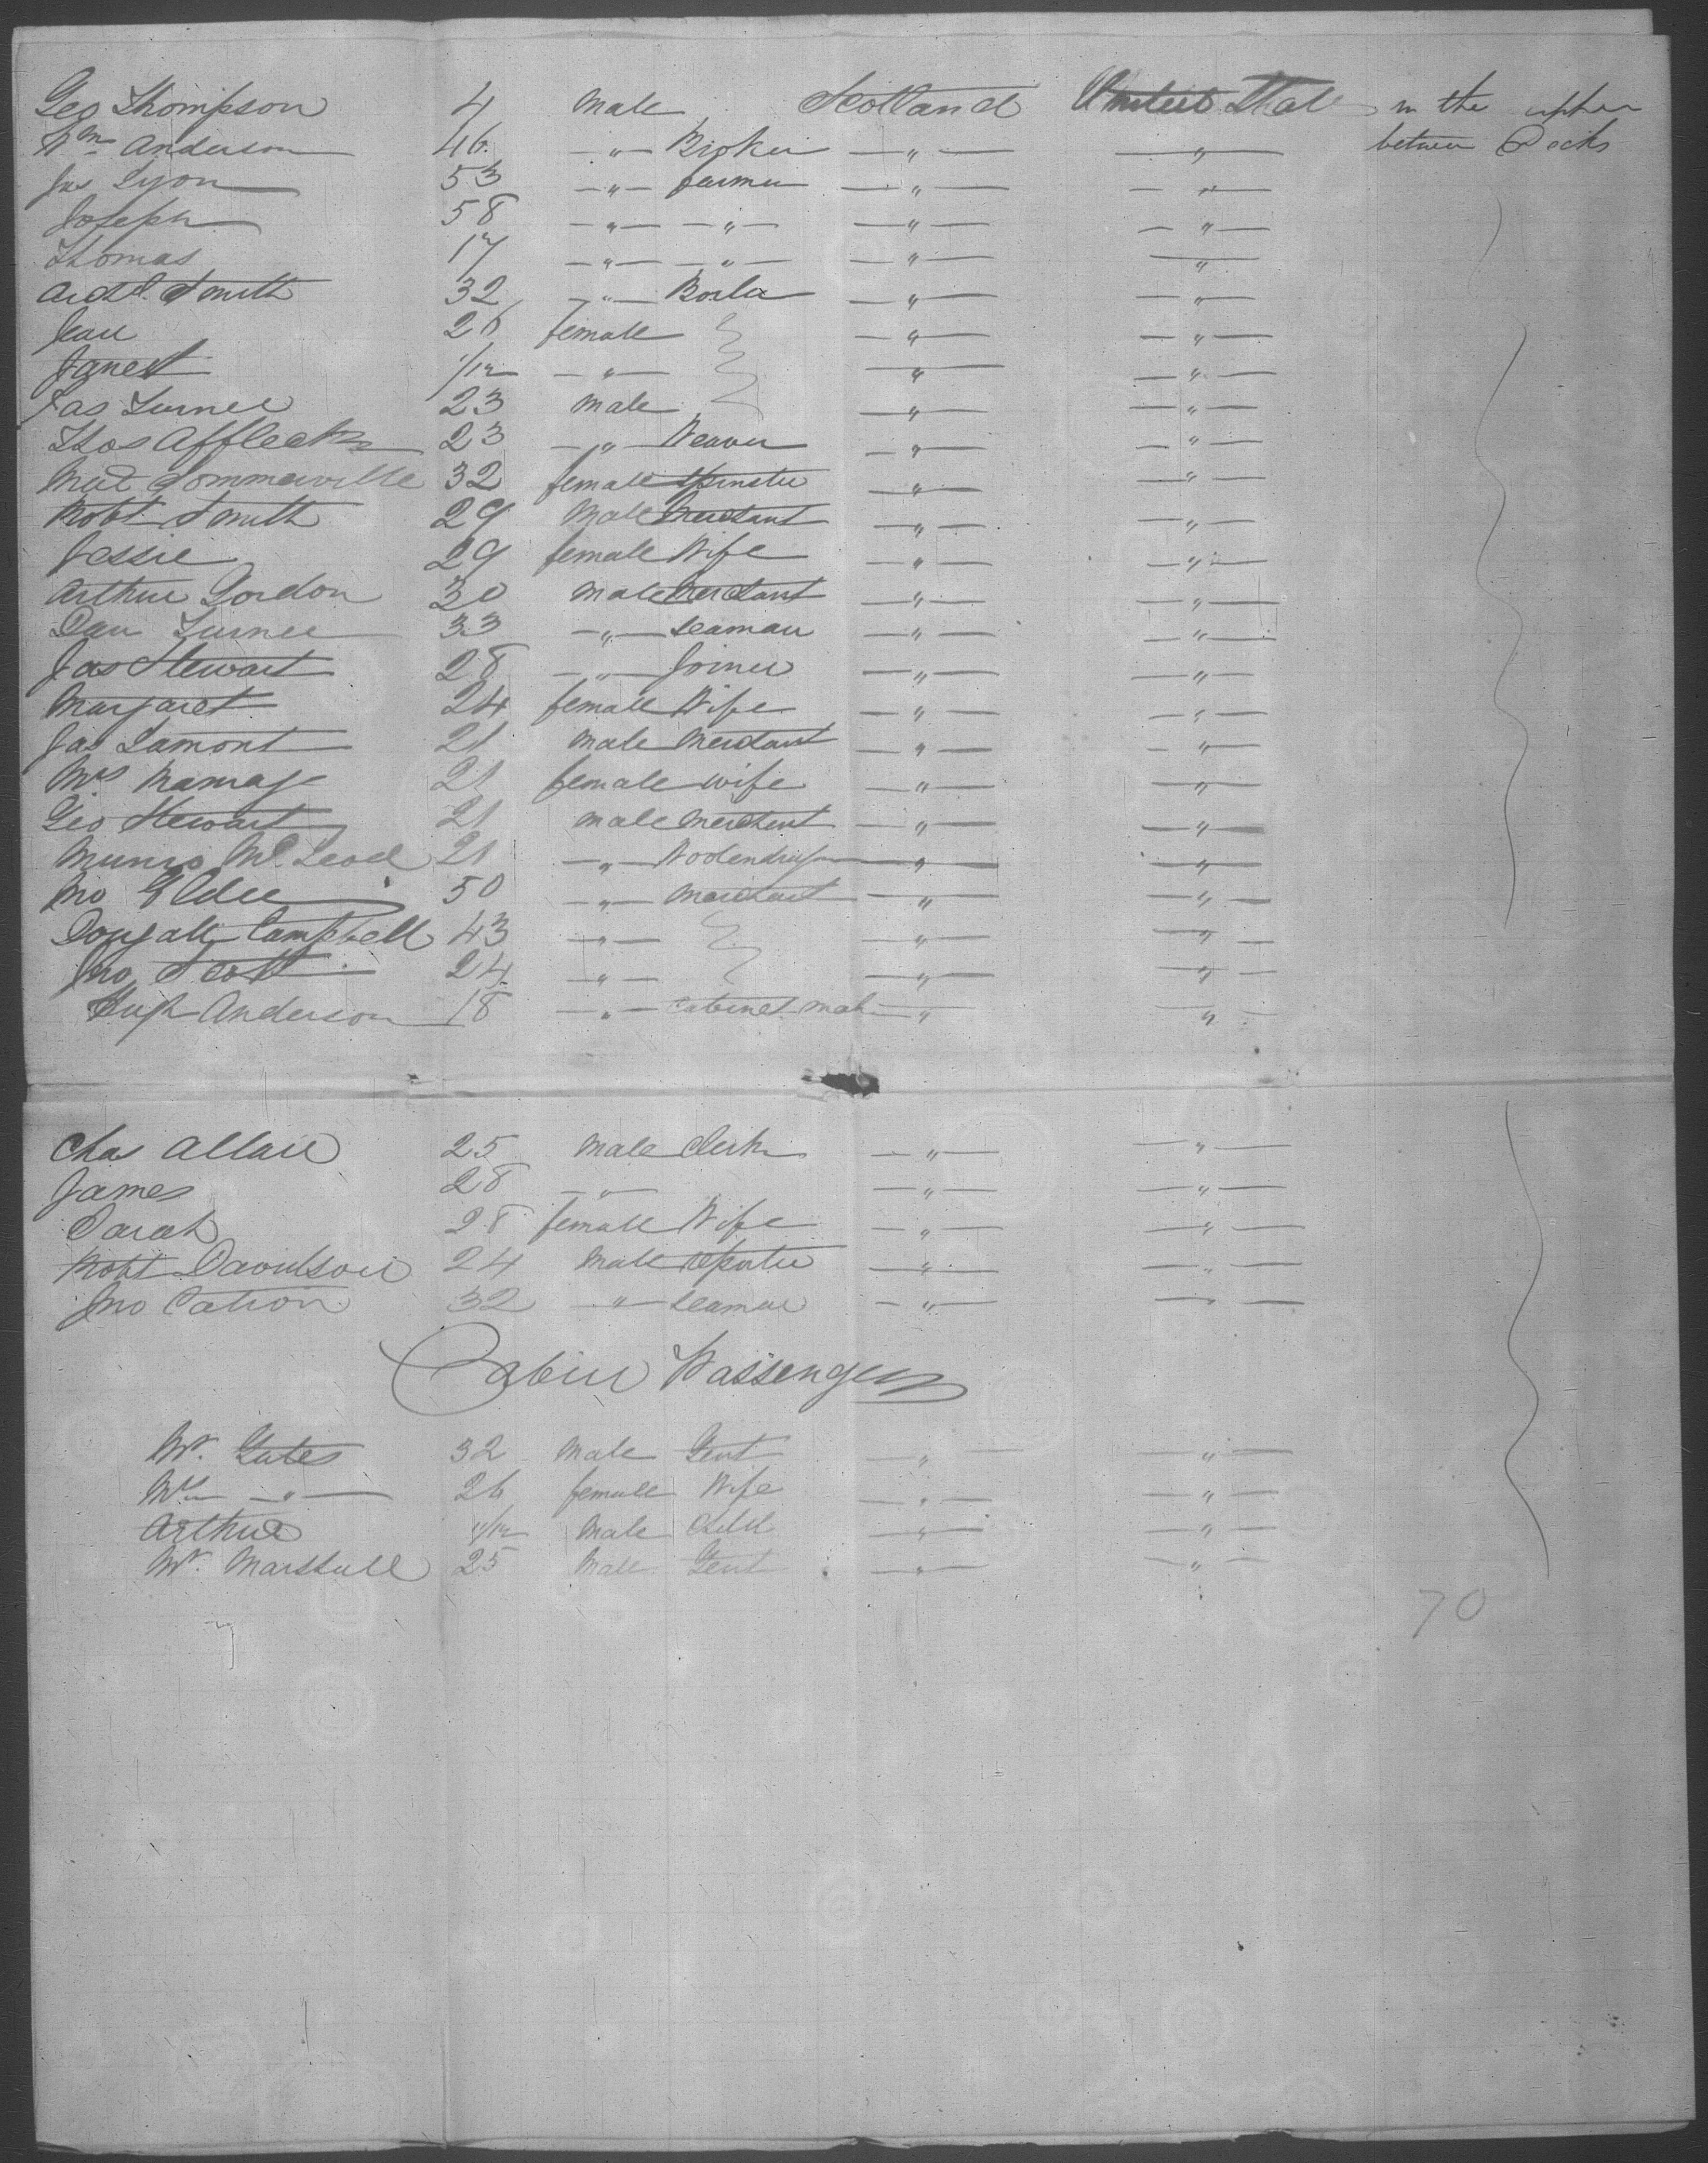 Geo Thompson 4 Male Scotland United Stat in the upper
Wm Anderson 46 " Broker " " between Decks
Jas Lyon 53 " farmer " "
Joseph 58 " " " "
Thomas 17 " " " "
Archd. Smith 32 " " "
Jean 26 female " "
Janet 1/12 " " "
Jas Turner 23 Male " "
Thos Affleck 23 " Weaver " "
Sommerville 32 female Spinster " "
Robt Smith 29 Male Merchant " "
Jessie 29 female Wife " "
Arthur Gordon 30 Male Merchant " "
Dan Turner 33 " Seaman " "
Jas Stewart 28 " Joiner " "
Margaret 24 female Wife " "
Jas Lamont 21 Male Merchant " "
Mrs Ramage 21 female wife " "
Geo Stewart 21 Male Merchant " "
Munro McLeod 21 " " "
Jno Elder 50 " Merchant " "
Dougall Campbell 43 " " "
Jno Scott 24 " " "
Hugh Anderson 18 " Cabinet mak " "
Chas Allan 25 Male Clerk " "
James 28 " " "
Sarah 28 female Wife " "
Robt Davidson 24 Male " "
Jno Cation 32 " Seaman " "
Cabin Passengers
Mr. Yates 32 Male Gent " "
Mrs " 26 female Wife " "
Arthur Male Child " "
Mr. Marshall 25 Male Gent " "
70